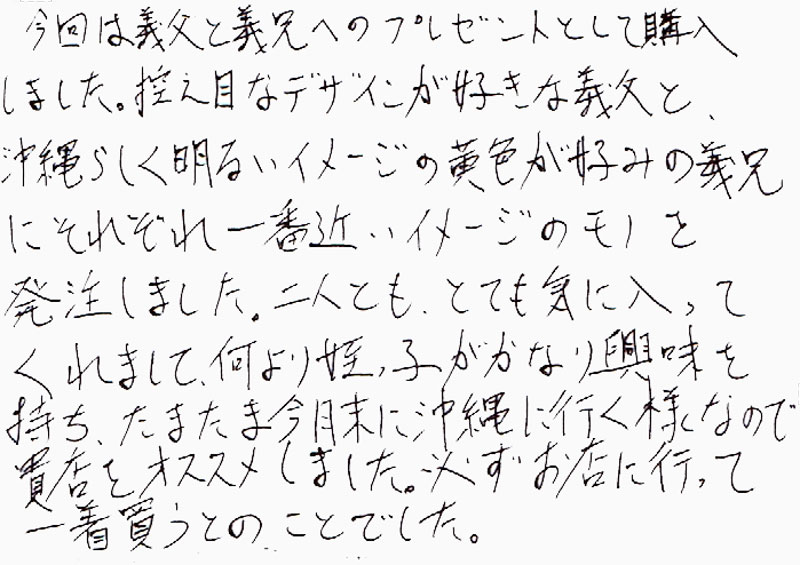 今回は義父と義兄へのプレゼントとして購入
しました。控え目なデザインが好きな義父と、
沖縄らしく明るいイメージの黄色が好みの義兄
にそれぞれ一番近いイメージのモノを
発注しました。二人とも、とても気に入って
くれまして、何より姪っ子がかなり興味を
持ち、たまたま今月末に沖縄に行く様なので
貴店をオススメしました。必ずお店に行って
一着買うとのことでした。